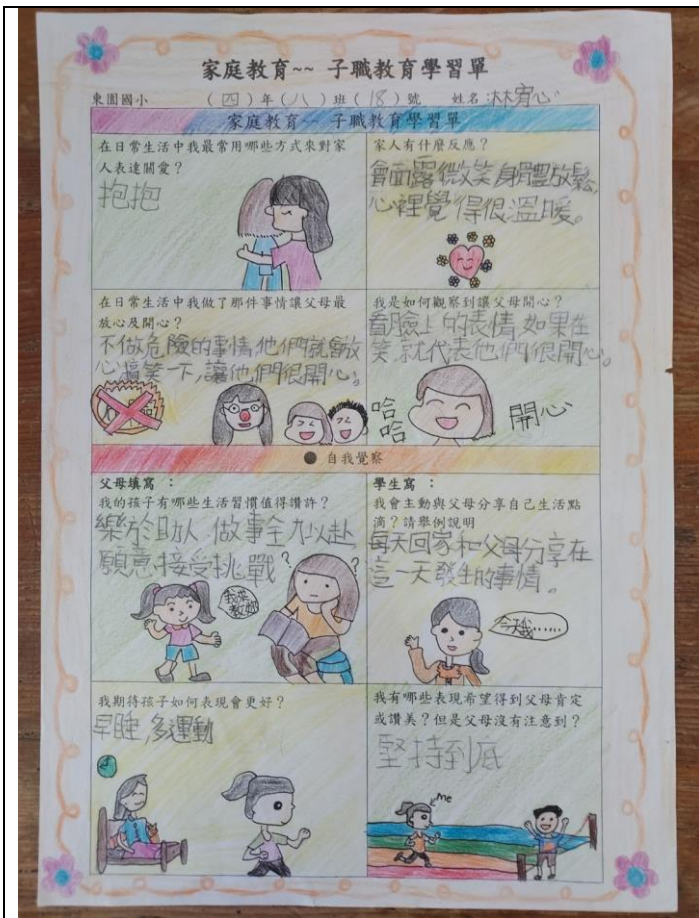 家庭教育~~ 子職教育學習單
東園國小 (四)年(八)班(18)號 姓名:林宥心
家庭教育~~ 子職教育學習單
在日常生活中我最常用哪些方式來對家
人表達關愛?
抱抱
家人有什麼反應?
會面露微笑,身體放鬆,
心裡覺得很溫暖。
在日常生活中我做了那件事情讓父母最
放心及開心?
不做危險的事情,他們就會放
心,搞笑一下,讓他們很開心。
我是如何觀察到讓父母開心?
看臉上的表情,如果在
笑,就代表他們很開心。
哈
哈
開心
● 自我覺察
父母填寫:
我的孩子有哪些生活習慣值得讚許?
樂於助人,做事全力以赴
願意接受挑戰
我來
教妳
?
?
學生寫:
我會主動與父母分享自己生活點
滴?請舉例說明
每天回家和父母分享在
這一天發生的事情。
今天我……
我期待孩子如何表現會更好?
早睡,多運動
我有哪些表現希望得到父母肯定
或讚美?但是父母沒有注意到?
堅持到底
me